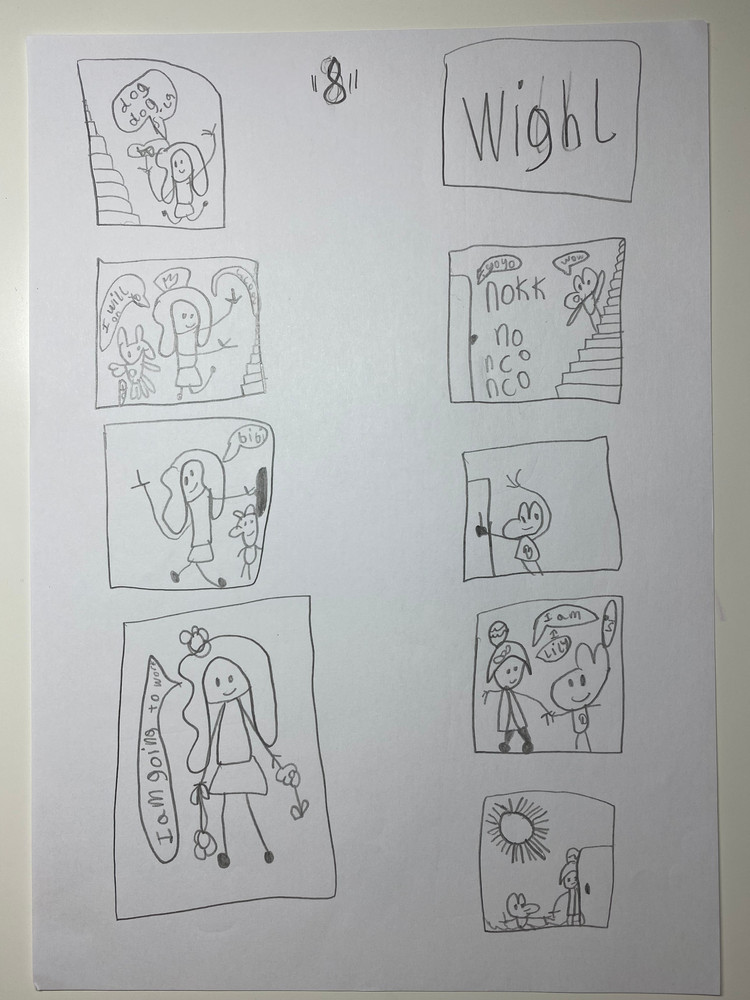 "8"
dog
dog
big
I will
go
bibi
I am going to work
Wighl
wow
nokk
no
nco
nco
I am
Lily